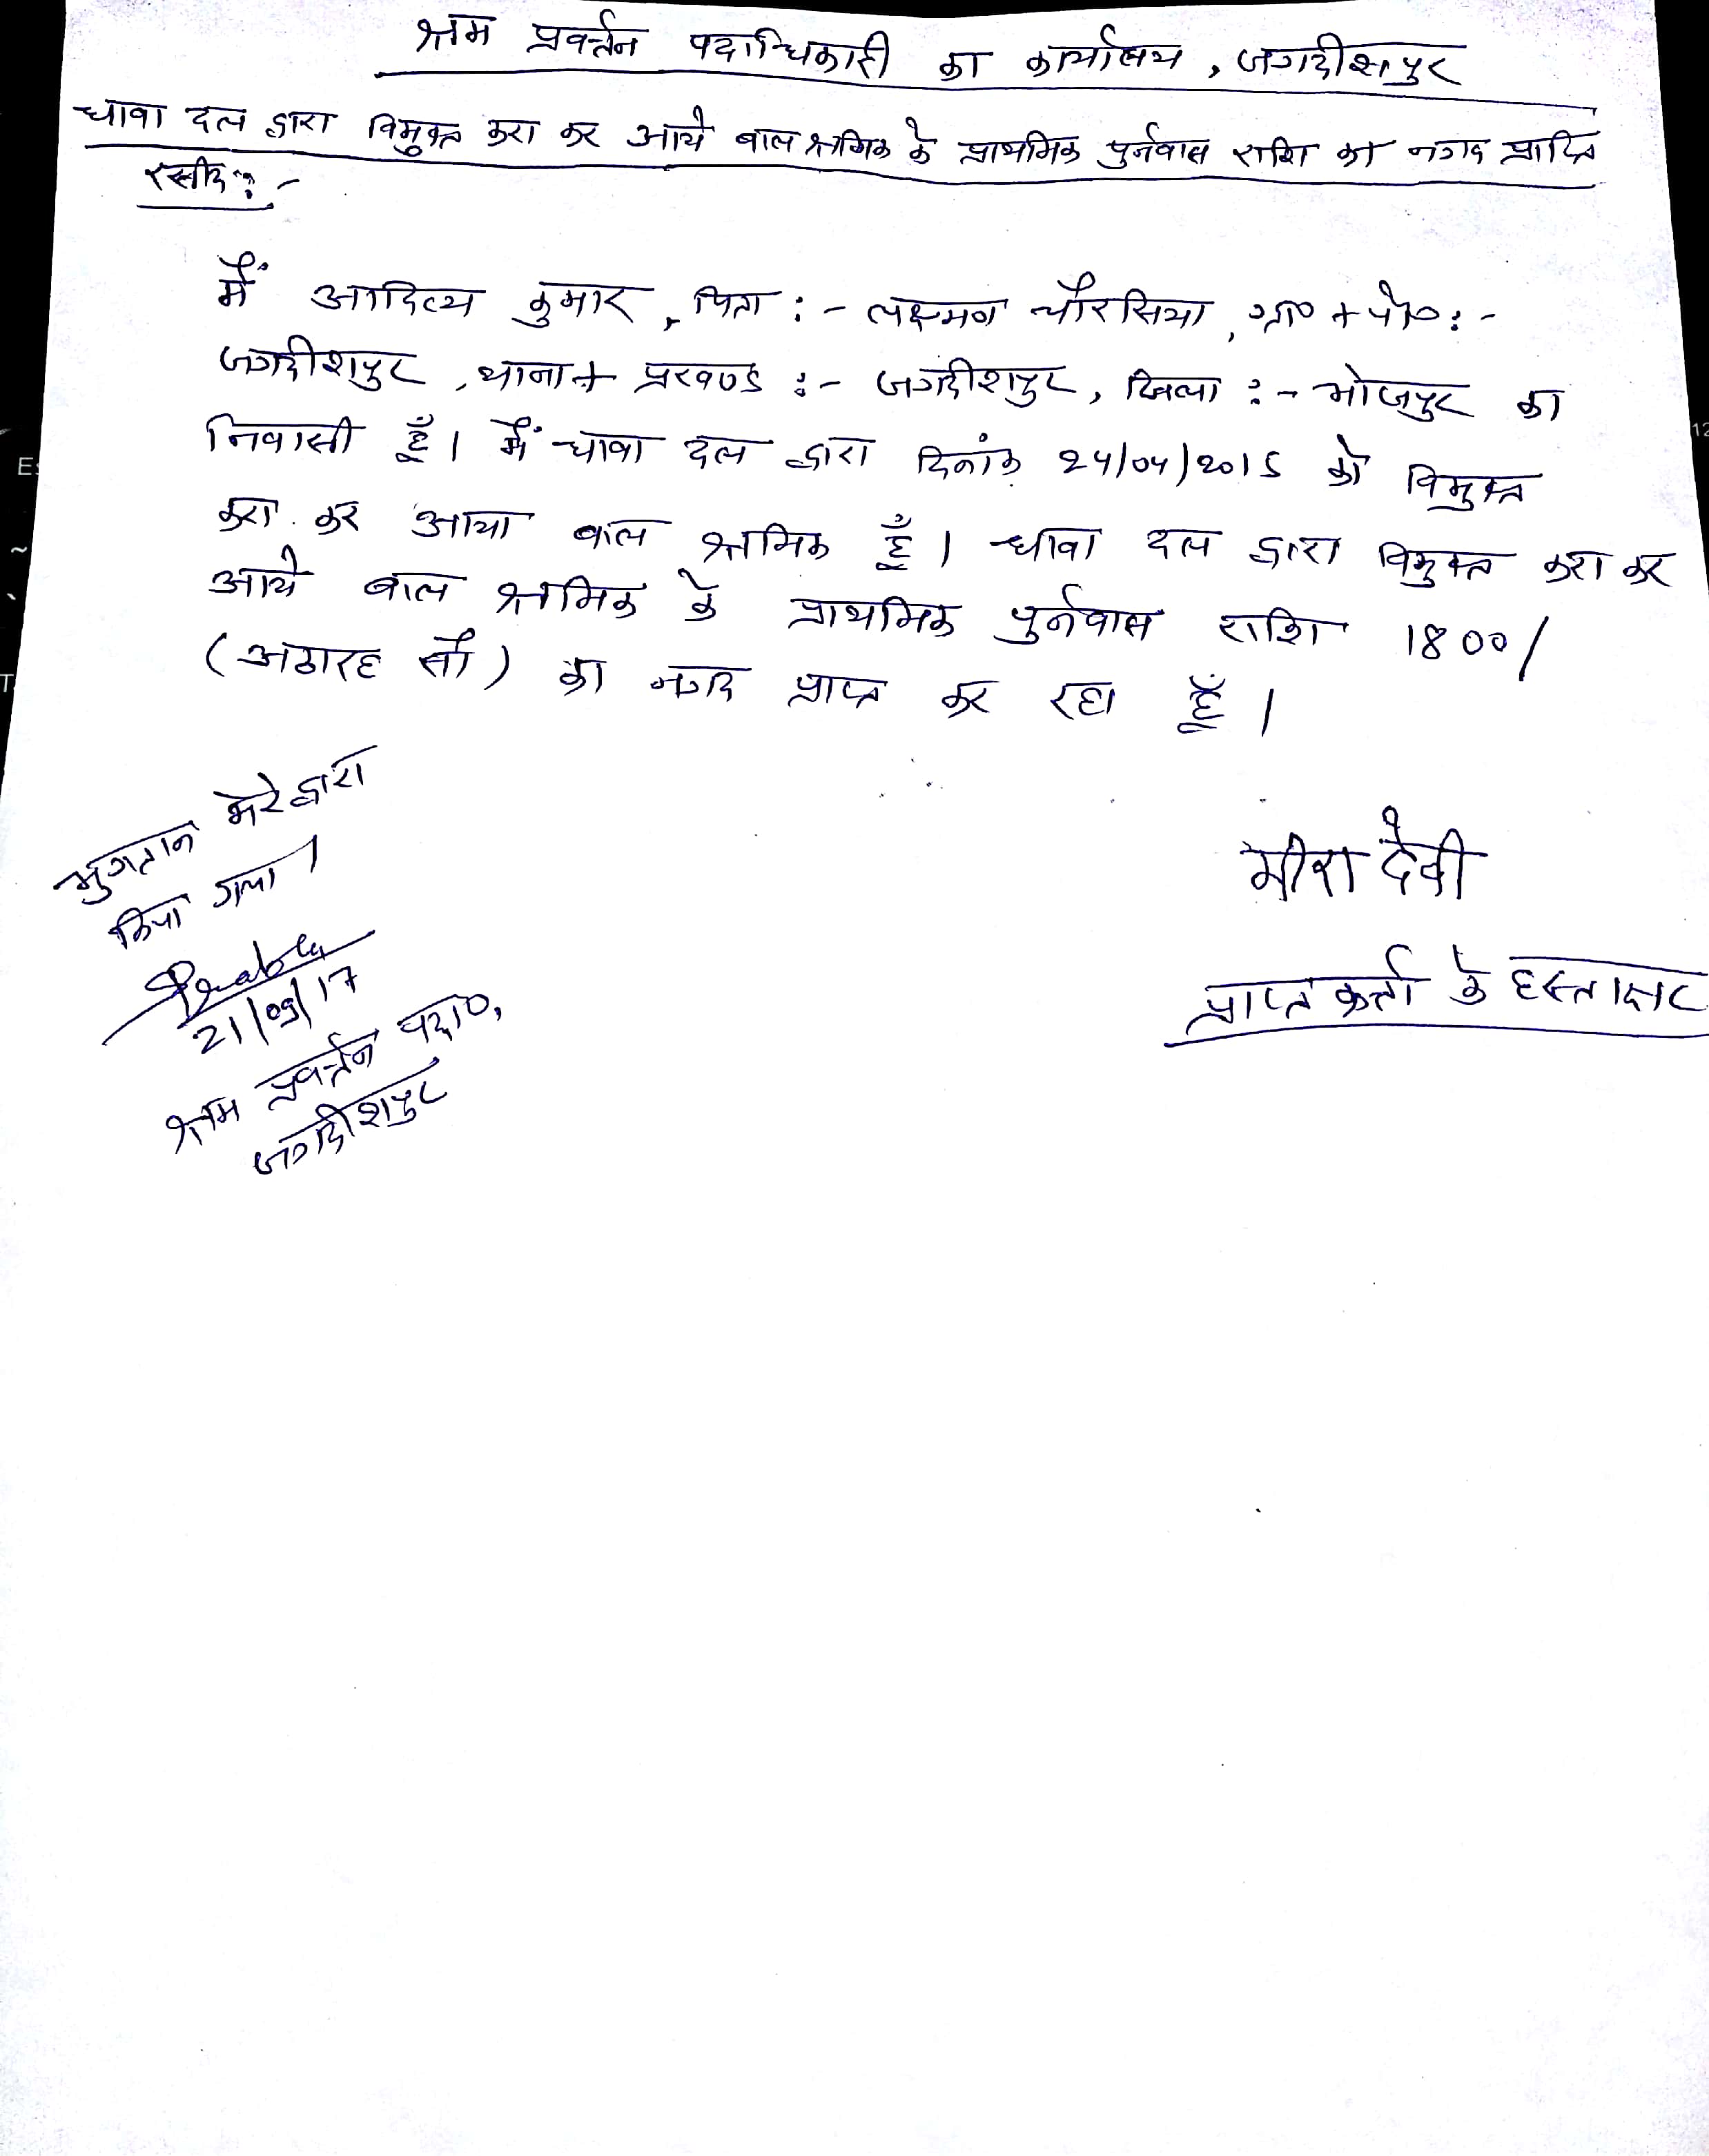 श्रम प्रवर्त्तन पदाधिकारी का कार्यालय, जगदीशपुर
धावा दल द्वारा विमुक्त करा कर आये बाल श्रमिक के प्राथमिक पुर्नवास राशि का नगद प्राप्ति
रसीद :-
मैं आदित्य कुमार, पिता :- लक्ष्मण चौरसिया, ग्रा० + पो० :-
जगदीशपुर, थाना + प्रखण्ड :- जगदीशपुर, जिला :- भोजपुर का
निवासी हूँ। मैं धावा दल द्वारा दिनांक 24/04/2015 को विमुक्त
करा कर आया बाल श्रमिक हूँ। धावा दल द्वारा विमुक्त करा कर
आये बाल श्रमिक के प्राथमिक पुर्नवास राशि 1800/
(अठारह सौ) का नगद प्राप्त कर रहा हूँ।
भुगतान मेरे द्वारा
किया गया।
21/09/17
श्रम प्रवर्त्तन पदा०,
जगदीशपुर
मीरा देवी
प्राप्त कर्त्ता के हस्ताक्षर